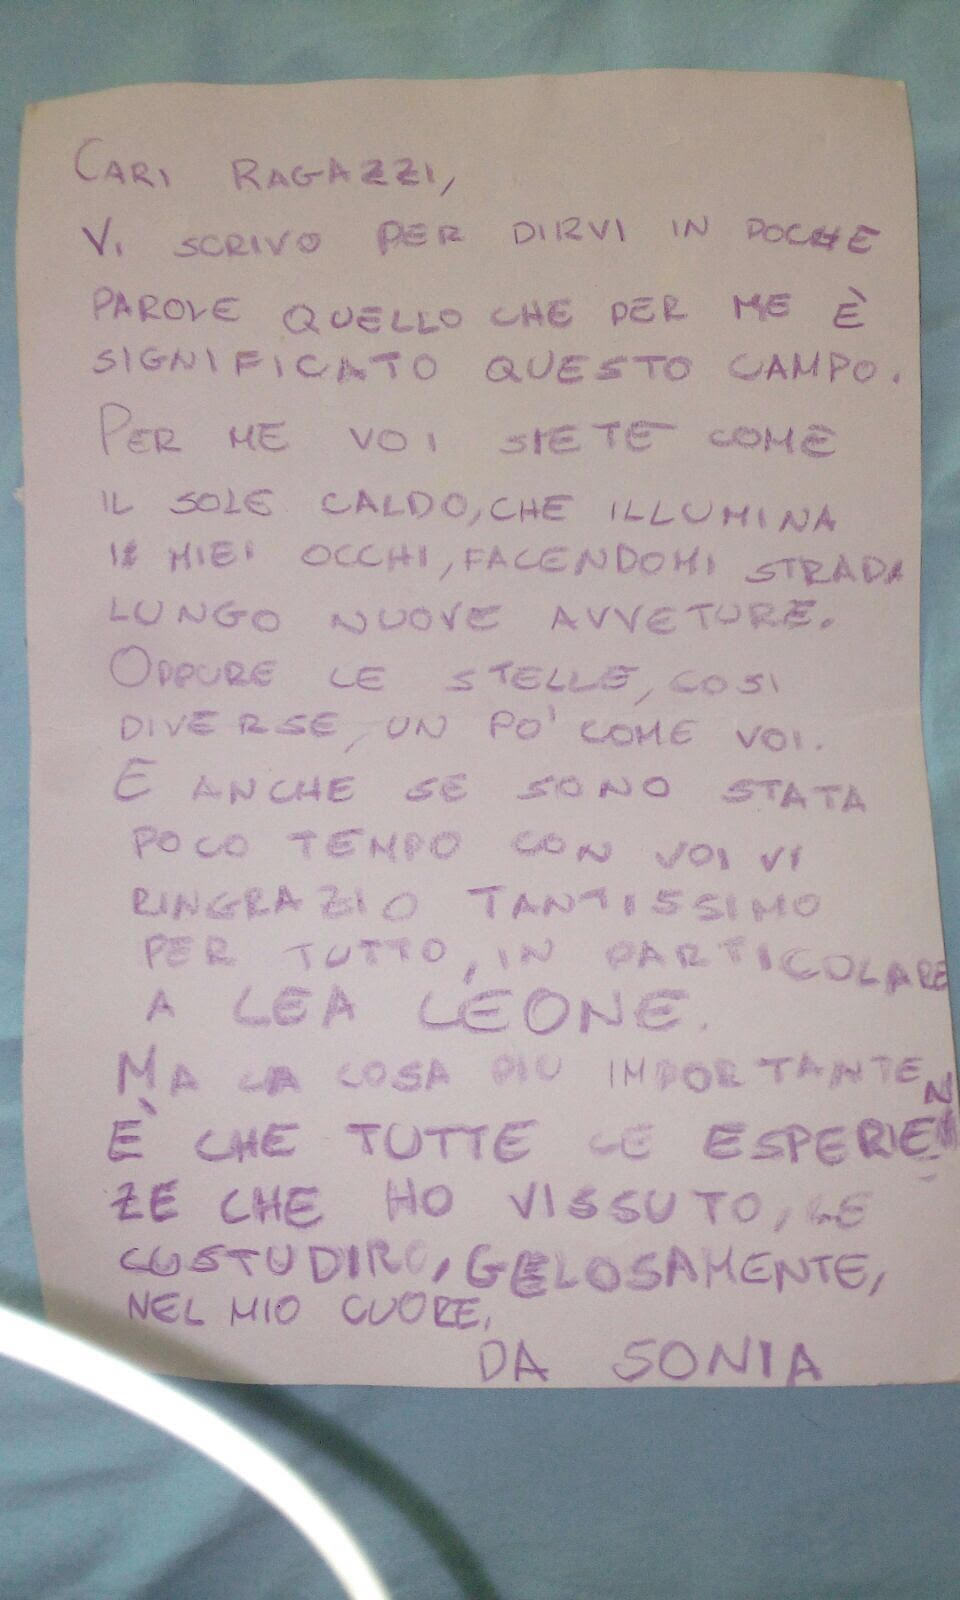 CARI RAGAZZI,
VI SCRIVO PER DIRVI IN POCHE
PAROLE QUELLO CHE PER ME È
SIGNIFICATO QUESTO CAMPO.
PER ME VOI SIETE COME
IL SOLE CALDO, CHE ILLUMINA
I MIEI OCCHI, FACENDOMI STRADA
LUNGO NUOVE AVVETURE.
OPPURE LE STELLE, COSI
DIVERSE, UN PO' COME VOI.
E ANCHE SE SONO STATA
POCO TEMPO CON VOI VI
RINGRAZIO TANTISSIMO
PER TUTTO, IN PARTICOLARE
A LEA LEONE.
MA LA COSA PIU IMPORTANTE
È CHE TUTTE LE ESPERIEN
ZE CHE HO VISSUTO, LE
CUSTUDIRO, GELOSAMENTE,
NEL MIO CUORE.
DA SONIA